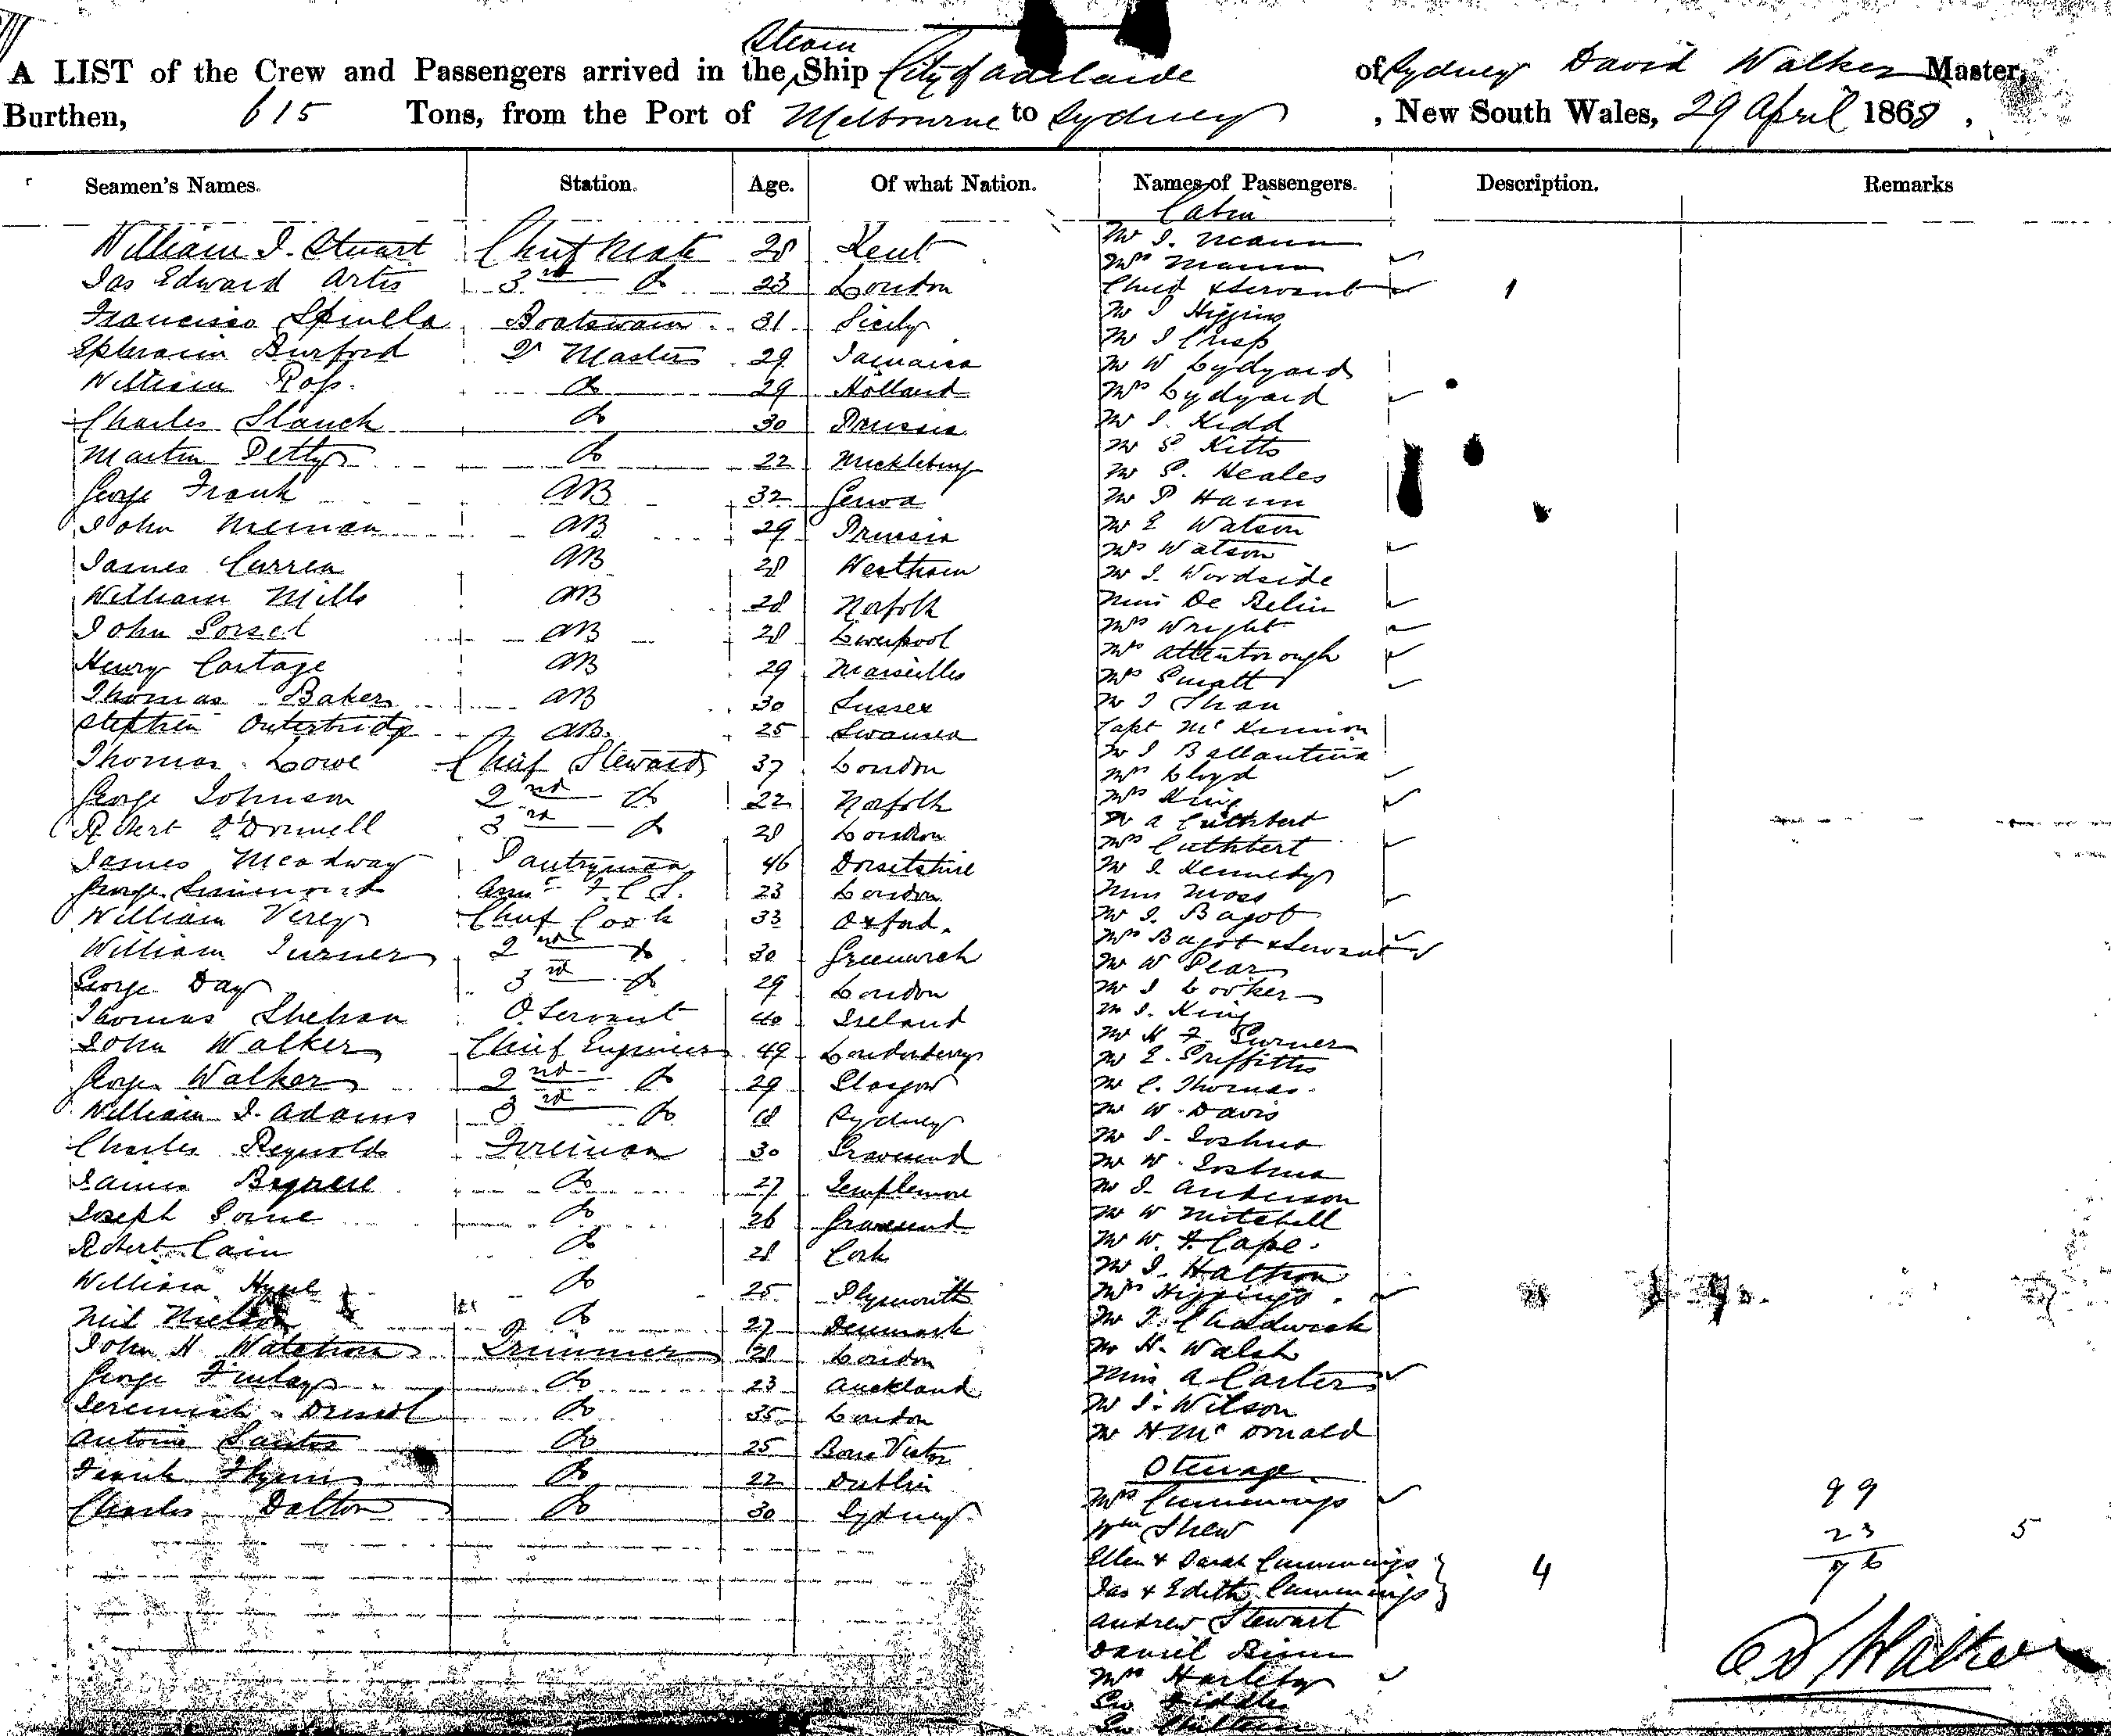 Steam
A LIST of the Crew and Passengers arrived in the Ship City of Adelaide of Sydney David Walker Master,
Burthen, 615 Tons, from the Port of Melbourne to Sydney, New South Wales, 29 April 1868,
Seamen's Names. Station. Age. Of what Nation. Names of Passengers. Description. Remarks
Cabin
William J. Stuart Chief Mate 28 Kent Mr J. Mann
Mrs Mann
Jas Edward Artis 3rd do 23 London Child & Servant 1
Francisco Spinella Boatswain 31 Sicily Mr J Higgins
Ephraim Burford Qr Master 29 Jamaica Mr J Crisp
Mr W Lydyard
William Ross do 29 Holland Mrs Lydyard
Charles Slauch do 30 Prussia Mr J. Kidd
Martin Petty do 22 Mickleburg Mr S Kitts
Mr S. Heales
George Frank AB 32 Genoa Mr P Hann
John AB 29 Prussia Mr E Watson
Mrs Watson
James Curren AB 28 Westham Mr J. Woodside
William Mills AB 28 Norfolk Miss De Belin
John Dorset AB 28 Liverpool Mrs Wright
Henry Cartage AB 29 Marseilles Mrs Attenborough
Mrs Smalt
Thomas Baker AB 30 Sussex Mr J
Stephen Outerbridge AB. 25 Swansea Capt Mc Kinnon
Thomas Lowe Chief Steward 37 London Mr J Ballantine
Mrs Lloyd
George Johnson 2nd do 22 Norfolk Mrs King
Robert O'Donnell 3rd do 28 London Mr A Cuthbert
Mrs Cuthbert
James Meadway Pantryman 46 Dorsetshire Mr J. Kennedy
George Simmons 23 London Miss Moss
William Verey Chief Cook 33 Oxford. Mr J. Bagot
Mrs Bagot & Servant
William Turner 2nd do 30 Greenwich Mr W Pear
George Day 3rd do 29 London Mr J Looker
Thomas Shehan O Servant 40 Ireland Mr J. King
Mr H F. Turner
John Walker Chief Engineer 49 Londonderry Mr E. Griffiths
George Walker 2nd do 29 Glasgow Mr C. Thomas
William J. Adams 3rd do 18 Sydney Mr W. Davis
Mr J. Joshua
Charles Reynolds Fireman 30 Gravesend Mr W. Joshua
James do 27 Templemore Mr J. Anderson
Joseph do 26 Gravesend Mr W Mitchell
Robert Cain do 28 Cork Mr W. J. Cape.
Mr J. Halton
William do 25 Plymouth Mrs Higgings.
Neil Nielson do 27 Denmark Mr T. Chadwick
John H Trimmer 28 London Mr H. Walsh
George Finlay do 23 Auckland Miss A Carter
Jeremiah do 35 London Mr J. Wilson
Antonio Santos do 25 Mr H Mc Donald
Steerage
Frank Flynn do 22 Dublin
Charles Dalton do 30 Sydney Mrs Cummings 99
Wm Shew 23 5
Ellen & Sarah Cummings 4 76
Jas & Edith Cummings
Andrew Stewart
Daniel
Mrs Hartley
D Walker